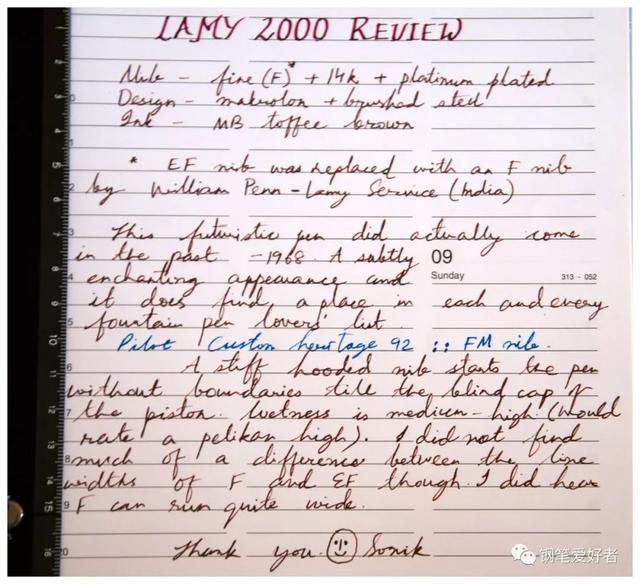 LAMY 2000 REVIEW
Nib – fine (F)* + 14k + platinum plated
Design – makrolon + brushed steel
Ink – MB toffee brown
* EF nib was replaced with an F nib
by William Penn – Lamy Service (India)
This futuristic pen did actually come
in the past – 1968. A subtly
09
Sunday
313 - 052
enchanting appearance and
it does find a place in each and every
fountain pen lovers' list
Pilot Custom heritage 92 :: FM nib.
A stiff hooded nib starts the pen
without boundaries till the blind cap of
the piston. Wetness is medium-high (would
rate a pelikan high). I did not find
much of a difference between the line
widths of F and EF though. I did hear
F can run quite wide.
Thank you. Sonik
钢笔爱好者